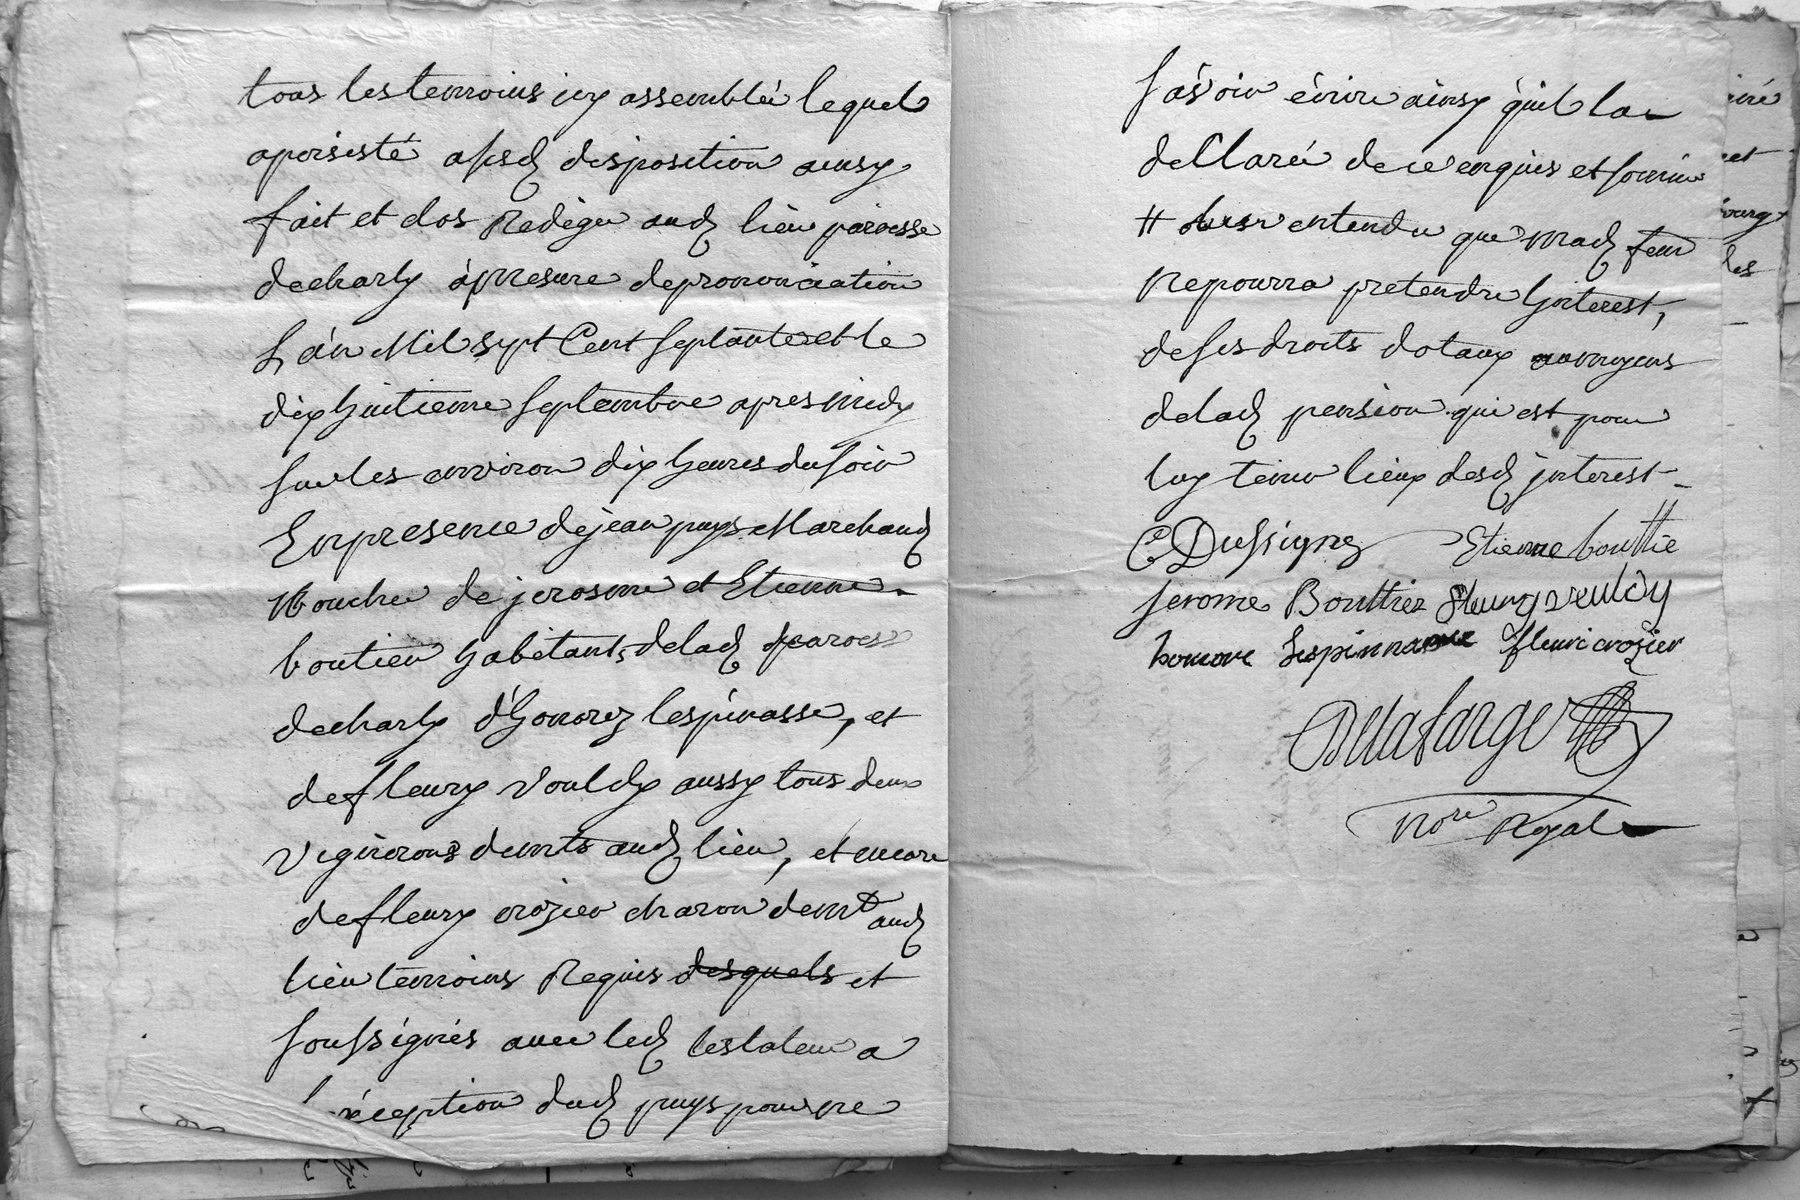 tous les temoins icy assemblée lequel
a persisté a sesd disposition ainsy
fait et clos Redigée aud lieu paroesse
de charly à mesure de prononciation
L'án Mil sept Cent septante et le
dixhuitieme septembre apres midy
sur les environ dix heures du soir
En presence de jean puys Marchand
Boucher de jerosme et Etienne
boutier habitants de lad paroess
de charly d'honorez lespinasse, et
de fleury vouldy aussy tous deux
vignerons demts aud lieu, et encore
de fleury crozier charon demt aud
lieu temoins Requis desquels et
soussignés avec led testateur a
exception dud puys pour ne
sávoir écrire ainsy quil la
declaré de ce enquis et somme
# entendu que mad
ne pourra pretendre d'interest,
de ses droits dotaux au moyens
de lad pension qui est pour
luy tenir lieux desd jnterest
C Dussigney Etienne bouttie
Jerome Bouttiez fleury vouldy
honore Lespinnasse fleuri crozier
Delafarge
Nore Royal